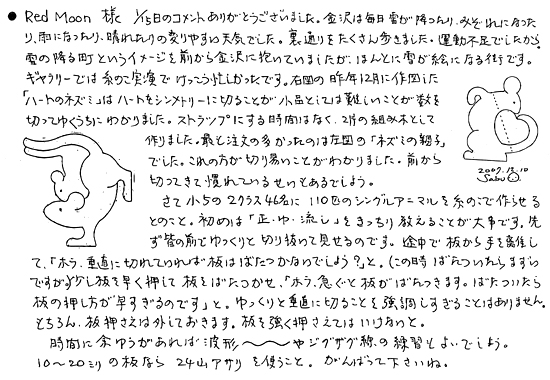 ● Red Moon 様 1/15日のコメントありがとうございました。金沢は毎日雪が降ったり、みぞれになった
り、雨になったり、晴れたりの変りやすい天気でした。裏通りをたくさん歩きました。運動不足でしたから
雪の降る町というイメージを前から金沢に抱いていましたが、ほんとに雪が絵になる街です。
ギャラリーでは糸のこ実演でけっこう忙しかったです。右図の昨年12月に作図した
「ハートのネズミ」はハートをシンメトリーに切ることが小品としては難しいことが数を
切ってゆくうちにわかりました。ストラップにする時間はなく、2片の組み木として
作りました。最も注文の多かったのは左図の「ネズミの親子」
でした。これの方が切り易いことがわかりました。前から
切ってきて慣れているせいもあるでしょう。
2007.12.10
Sabu
さて小5の2クラス46名に110匹のシングルアニマルを糸のこで作らせる
とのこと。初めは「正・ゆ・流し」をきっちり教えることが大事です。先
ず皆の前でゆっくりと切り抜いて見せるのです。途中で板から手を離し
て、「ホラ、垂直に切れていれば板はばたつかないでしょう?」と。(この時ばたついたらまずい
ですが)少し板を早く押して板をばたつかせ、「ホラ、急ぐと板がばたつきます。ばたついたら
板の押し方が早すぎるのです」と。ゆっくりと垂直に切ることを強調しすぎることはありません。
もちろん、板押さえは外しておきます。板を強く押さえてはいけないと。
時間に余ゆうがあれば波形〜〜やジグザグ線の練習もよいでしょう。
10〜20ミリの板なら 24山アサリを使うこと。がんばって下さいね。